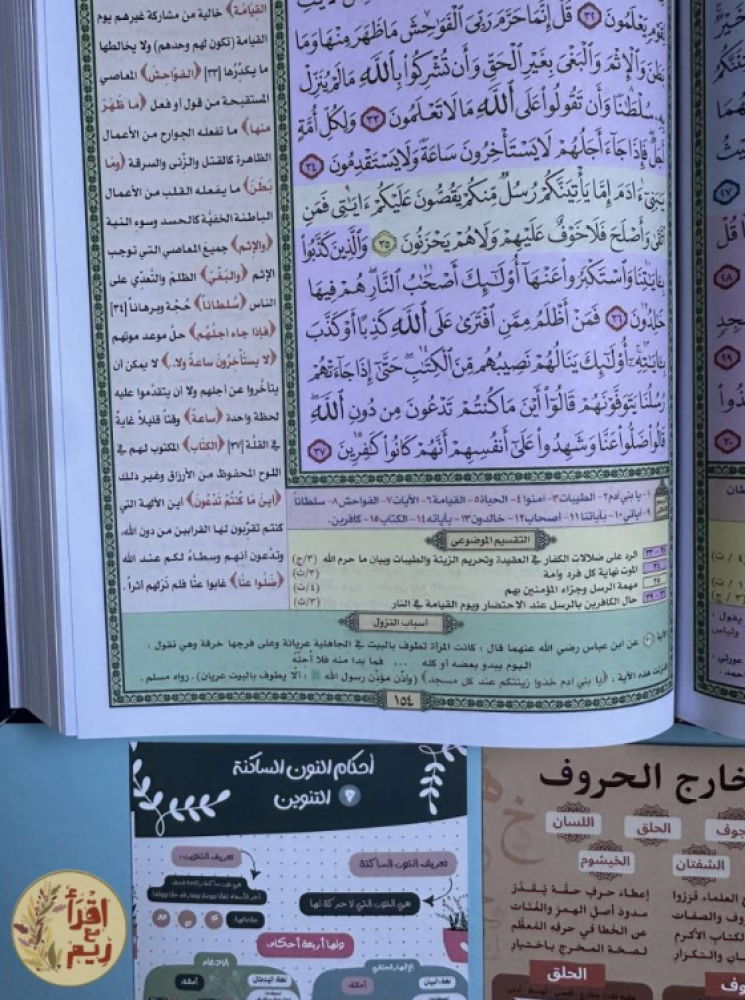 قَوْمٍ يَعْلَمُونَ ٣٢ قُلْ إِنَّمَا حَرَّمَ رَبِّيَ الْفَوَاحِشَ مَا ظَهَرَ مِنْهَا وَمَا
بَطَنَ وَالْإِثْمَ وَالْبَغْيَ بِغَيْرِ الْحَقِّ وَأَن تُشْرِكُوا بِاللَّهِ مَا لَمْ يُنَزِّلْ
بِهِ سُلْطَٰنًا وَأَن تَقُولُوا عَلَى اللَّهِ مَا لَا تَعْلَمُونَ ٣٣ وَلِكُلِّ أُمَّةٍ
أَجَلٌ فَإِذَا جَاءَ أَجَلُهُمْ لَا يَسْتَأْخِرُونَ سَاعَةً وَلَا يَسْتَقْدِمُونَ ٣٤
يَٰبَنِي ءَادَمَ إِمَّا يَأْتِيَنَّكُمْ رُسُلٌ مِّنكُمْ يَقُصُّونَ عَلَيْكُمْ ءَايَٰتِي فَمَنِ
اتَّقَىٰ وَأَصْلَحَ فَلَا خَوْفٌ عَلَيْهِمْ وَلَا هُمْ يَحْزَنُونَ ٣٥ وَالَّذِينَ كَذَّبُوا
بِـَٔايَٰتِنَا وَاسْتَكْبَرُوا عَنْهَا أُولَٰئِكَ أَصْحَٰبُ النَّارِ هُمْ فِيهَا
خَٰلِدُونَ ٣٦ فَمَنْ أَظْلَمُ مِمَّنِ افْتَرَىٰ عَلَى اللَّهِ كَذِبًا أَوْ كَذَّبَ
بِـَٔايَٰتِهِ أُولَٰئِكَ يَنَالُهُمْ نَصِيبُهُم مِّنَ الْكِتَٰبِ حَتَّىٰ إِذَا جَاءَتْهُمْ
رُسُلُنَا يَتَوَفَّوْنَهُمْ قَالُوا أَيْنَ مَا كُنتُمْ تَدْعُونَ مِن دُونِ اللَّهِ
قَالُوا ضَلُّوا عَنَّا وَشَهِدُوا عَلَىٰ أَنفُسِهِمْ أَنَّهُمْ كَانُوا كَٰفِرِينَ ٣٧
القيامة﴾ خالية من مشاركة غيرهم يوم
القيامة (تكون لهم وحدهم) ولا يخالطها
ما يكدّرها [٣٣] ﴿الفواحش﴾ المعاصي
المستقبحة من قول أو فعل ﴿ما ظهر
منها﴾ ما تفعله الجوارح من الأعمال
الظاهرة كالقتل والزّنى والسرقة ﴿وما
بطن﴾ ما يفعله القلب من الأعمال
الباطنة الخفيّة كالحسد وسوء النية
﴿والإثم﴾ جميع المعاصي التي توجب
الإثم ﴿والبغي﴾ الظلم والتّعدّي على
الناس ﴿سلطاناً﴾ حُجّة وبرهاناً [٣٤]
﴿فإذا جاء أجلهم﴾ حلّ موعد موتهم
﴿لا يستأخرون ساعة ولا..﴾ لا يمكن أن
يتأخّروا عن أجلهم ولا أن يتقدّموا عليه
لحظة واحدة ﴿ساعة﴾ وقتاً قليلاً غاية
في القلّة [٣٧] ﴿الكتاب﴾ المكتوب لهم في
اللوح المحفوظ من الأرزاق وغير ذلك
﴿أين ما كنتم تدعون﴾ أين الآلهة التي
كنتم تقرّبون لها القرابين من دون الله،
وتدعون أنهم وسطاء لكم عند الله
﴿ضلّوا عنّا﴾ غابوا عنّا فلم نَرَلهم أثراً.
١- يا بني آدم ٢- الطيبات ٣- آمنوا ٤- الحياة ٥- القيامة ٦- الآيات ٧- الفواحش ٨- سلطاناً
٩- آياتي ١٠- بآياتنا ١١- أصحاب ١٢- خالدون ١٣- بآياته ١٤- الكتاب ١٥- كافرين.
التقسيم الموضوعي
الرد على ضلالات الكفار في العقيدة وتحريم الزينة والطيبات وبيان ما حرم الله (٣/ج)
٣٤ الموت نهاية كل فرد وأمة (٣/ت)
٣٥ مهمة الرسل وجزاء المؤمنين بهم (٤/ت)
حال الكافرين بالرسل عند الاحتضار ويوم القيامة في النار (٣/ت)
أسباب النزول
الآية عن ابن عباس رضي الله عنهما قال: كانت المرأة تطوف بالبيت في الجاهلية عريانة وعلى فرجها خرقة وهي تقول:
اليوم يبدو بعضه أو كله ... فما بدا منه فلا أحلّه
فنزلت هذه الآية: ﴿يا بني آدم خذوا زينتكم عند كل مسجد﴾ (وأذّن مؤذّن رسول الله ﷺ: ألّا يطوف بالبيت عريان). رواه مسلم.
١٥٤
أحكام النون الساكنة
و التنوين
تعريف التنوين:
تعريف النون الساكنة
هي النون التي لا حركة لها
ولها أربعة أحكام:
خارج الحروف
جوف
الحلق
اللسان
الشفتان
الخيشوم
إعطاء حرفٍ حقّهُ يُقدّر
الحلق
اقرأ
مع
ريم